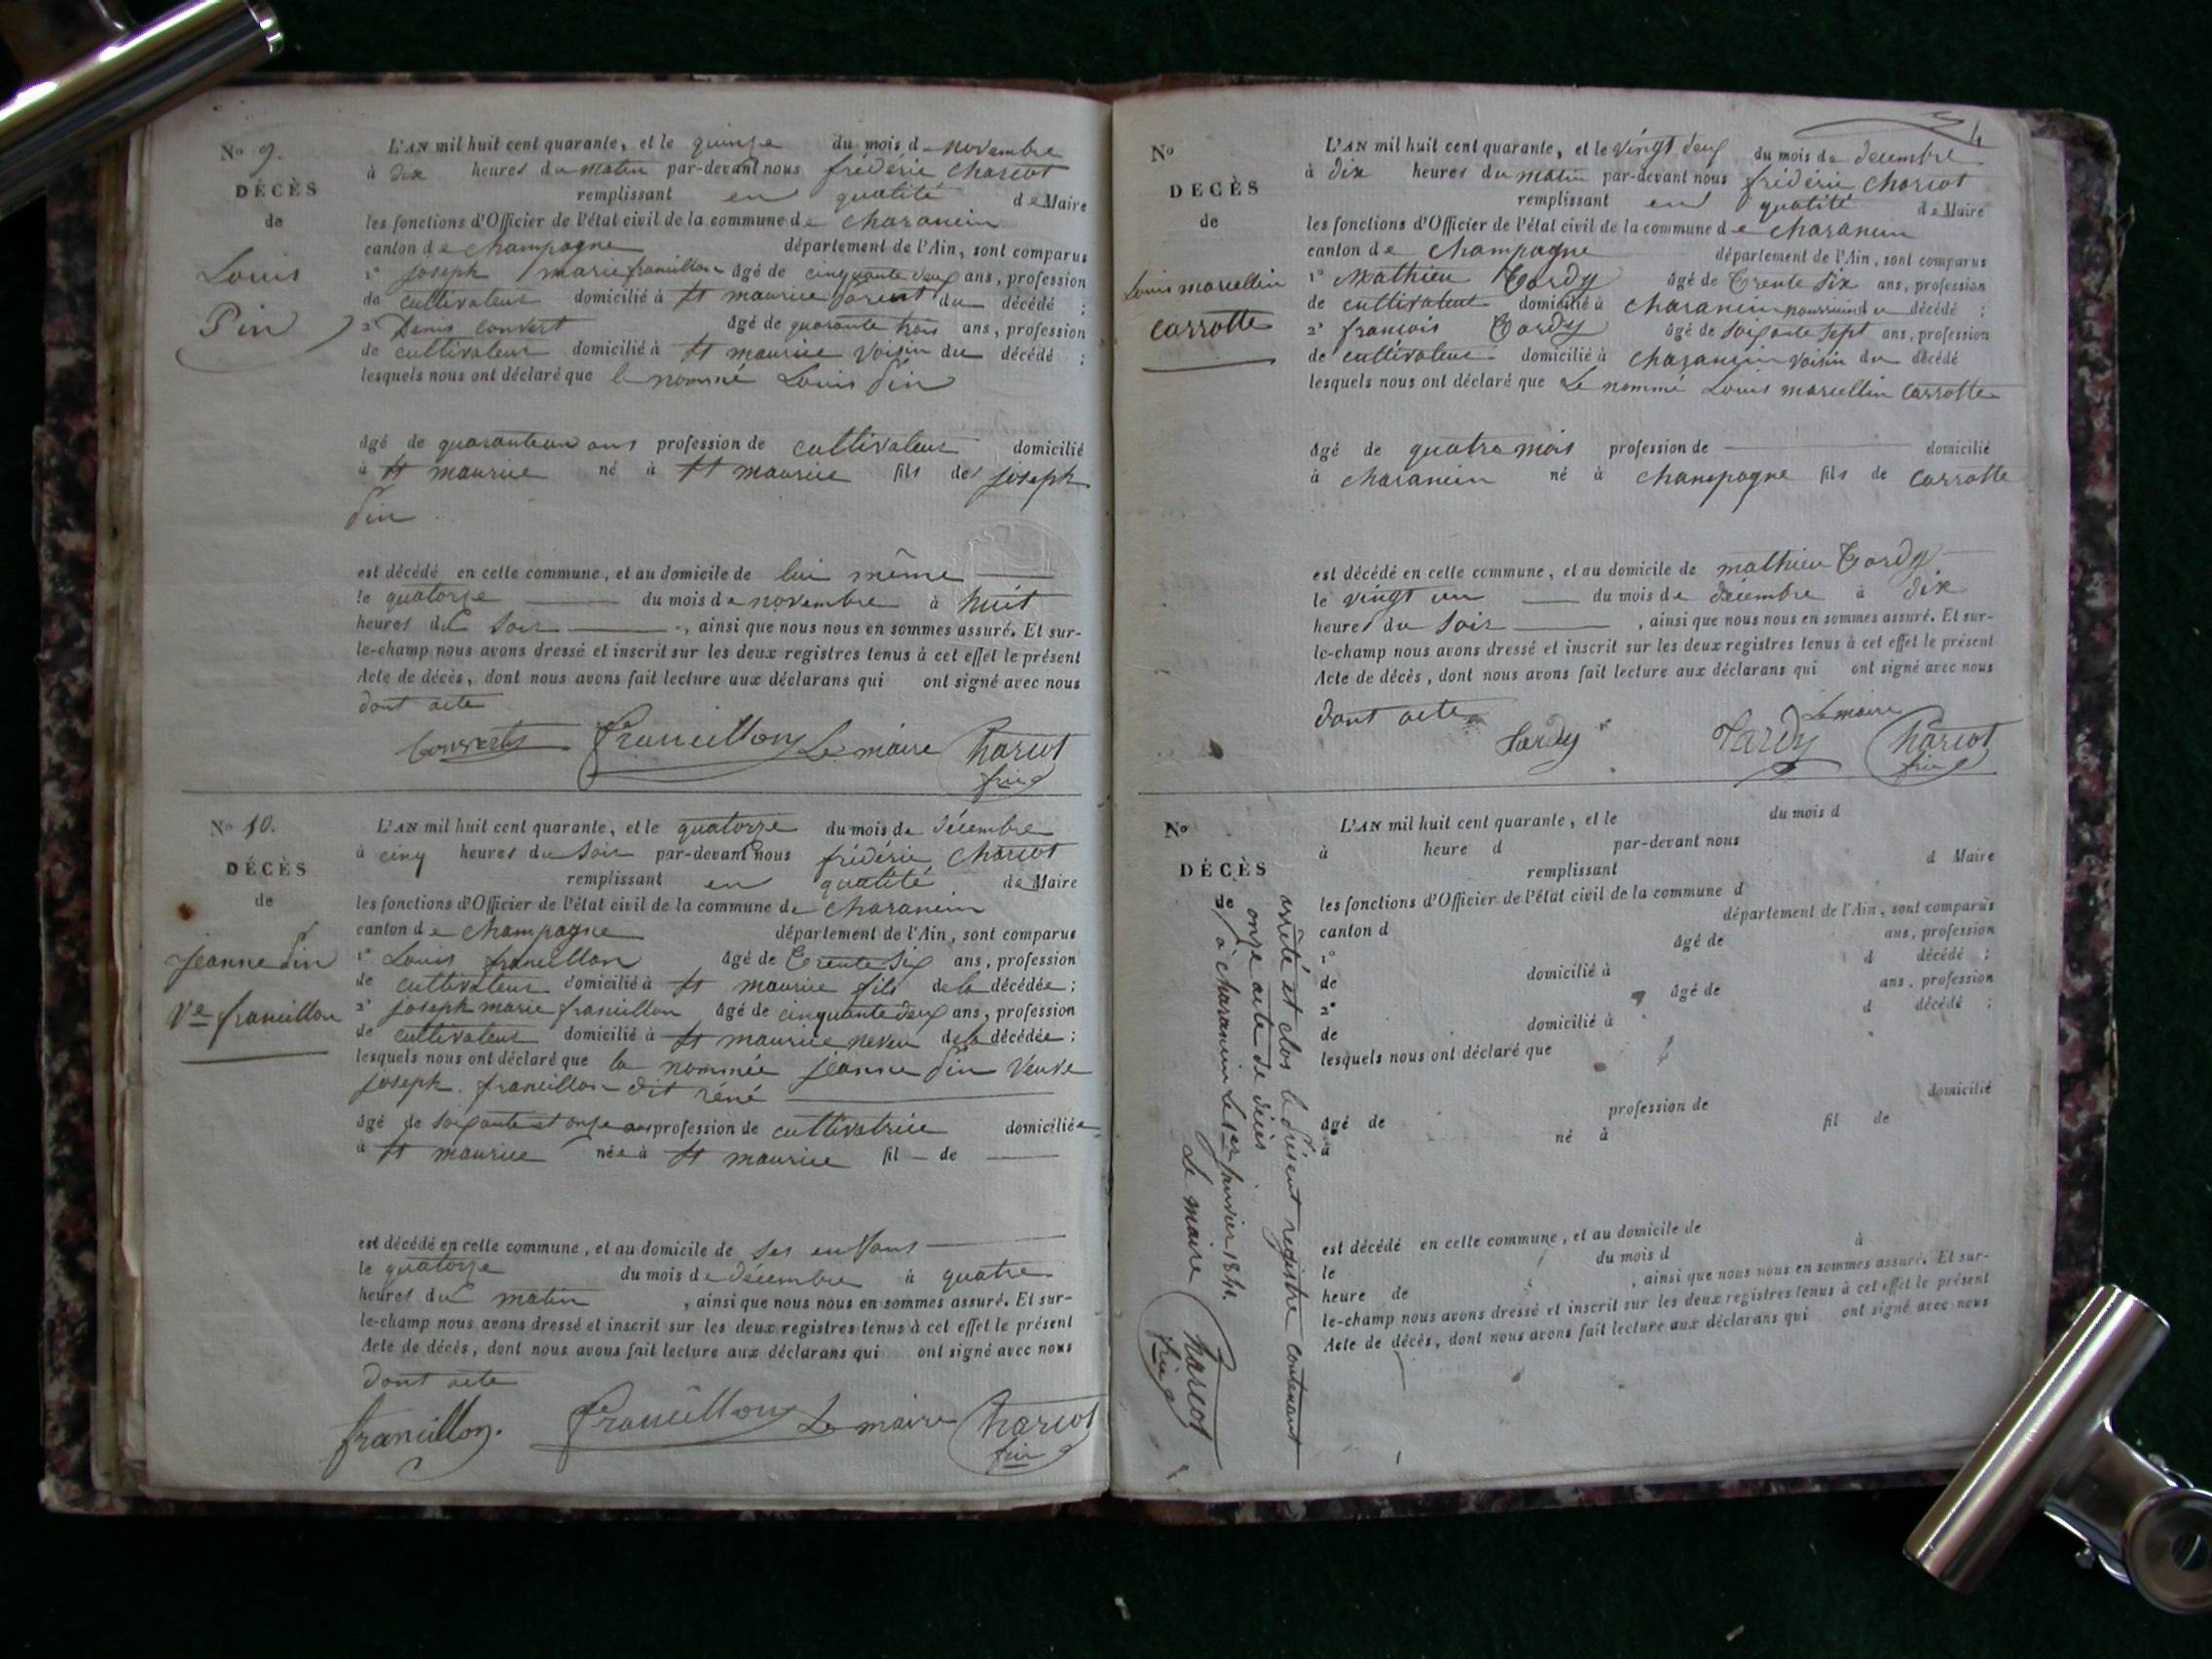 No 9.
DÉCÈS
de
Louis
Pin
L'AN mil huit cent quarante, et le quinze du mois de novembre
à dix heures du matin par-devant nous frédéric Charcot
remplissant en qualité de Maire
les fonctions d'Officier de l'état civil de la commune de charancin
canton de champagne département de l'Ain, sont comparus
1° joseph marie francillon âgé de cinquante deux ans, profession
de cultivateur domicilié à st maurice parent du décédé ;
2° Denis convert âgé de quarante trois ans, profession
de cultivateur domicilié à st maurice voisin du décédé ;
lesquels nous ont déclaré que le nommé Louis Pin
âgé de quarante un ans profession de cultivateur domicilié
à st maurice né à st maurice fils de joseph
Pin
est décédé en cette commune, et au domicile de lui même
le quatorze du mois de novembre à huit
heures du soir, ainsi que nous nous en sommes assuré. Et sur-
le-champ nous avons dressé et inscrit sur les deux registres tenus à cet effet le présent
Acte de décès, dont nous avons fait lecture aux déclarans qui ont signé avec nous
dont acte
Convert Francillon Le maire Charcot
fric
No 10.
DÉCÈS
de
jeanne Pin
Ve francillon
L'AN mil huit cent quarante, et le quatorze du mois de décembre
à cinq heures du soir par-devant nous frédéric Charcot
remplissant en qualité de Maire
les fonctions d'Officier de l'état civil de la commune de charancin
canton de champagne département de l'Ain, sont comparus
1° Louis francillon âgé de trente six ans, profession
de cultivateur domicilié à st maurice fils de la décédée ;
2° joseph marie francillon âgé de cinquante deux ans, profession
de cultivateur domicilié à st maurice neveu de la décédée ;
lesquels nous ont déclaré que la nommée jeanne Pin veuve
joseph francillon dit réné
âgé de soixante et onze ans profession de cultivatrice domiciliée
à st maurice née à st maurice fil de
est décédé en cette commune, et au domicile de ses enfans
le quatorze du mois de décembre à quatre
heures du matin, ainsi que nous nous en sommes assuré. Et sur-
le-champ nous avons dressé et inscrit sur les deux registres tenus à cet effet le présent
Acte de décès, dont nous avons fait lecture aux déclarans qui ont signé avec nous
dont acte
francillon. Francillon Le maire Charcot
fric
4
No
DECÈS
de
Louis marcellin
carrotte
L'AN mil huit cent quarante, et le vingt deux du mois de decembre
à dix heures du matin par-devant nous frédéric Charcot
remplissant en qualité de Maire
les fonctions d'Officier de l'état civil de la commune de charancin
canton de champagne département de l'Ain, sont comparus
1° Mathieu Tardy âgé de trente six ans, profession
de cultivateur domicilié à charancin nourricier du décédé ;
2° francois Tardy âgé de soixante sept ans, profession
de cultivateur domicilié à charancin voisin du décédé
lesquels nous ont déclaré que Le nommé Louis marcellin carrotte
âgé de quatre mois profession de domicilié
à charancin né à champagne fils de carrotte
est décédé en cette commune, et au domicile de mathieu Tardy
le vingt un du mois de décembre à dix
heures du soir, ainsi que nous nous en sommes assuré. Et sur-
le-champ nous avons dressé et inscrit sur les deux registres tenus à cet effet le présent
Acte de décès, dont nous avons fait lecture aux déclarans qui ont signé avec nous
dont acte Le maire
Tardy Tardy Charcot
fric
No
DÉCÈS
de
L'AN mil huit cent quarante, et le du mois d
à heure d par-devant nous
remplissant d Maire
les fonctions d'Officier de l'état civil de la commune d
canton d département de l'Ain, sont comparus
1° âgé de ans, profession
de domicilié à d décédé ;
2° âgé de ans, profession
de domicilié à d décédé ;
lesquels nous ont déclaré que
âgé de profession de domicilié
à né à fil de
est décédé en cette commune, et au domicile de
le du mois d à
heure de , ainsi que nous nous en sommes assuré. Et sur-
le-champ nous avons dressé et inscrit sur les deux registres tenus à cet effet le présent
Acte de décès, dont nous avons fait lecture aux déclarans qui ont signé avec nous
arrêté et clos le présent registre contenant
onze acte de décès
à charancin Le 1er janvier 1841.
Le maire Charcot
fric